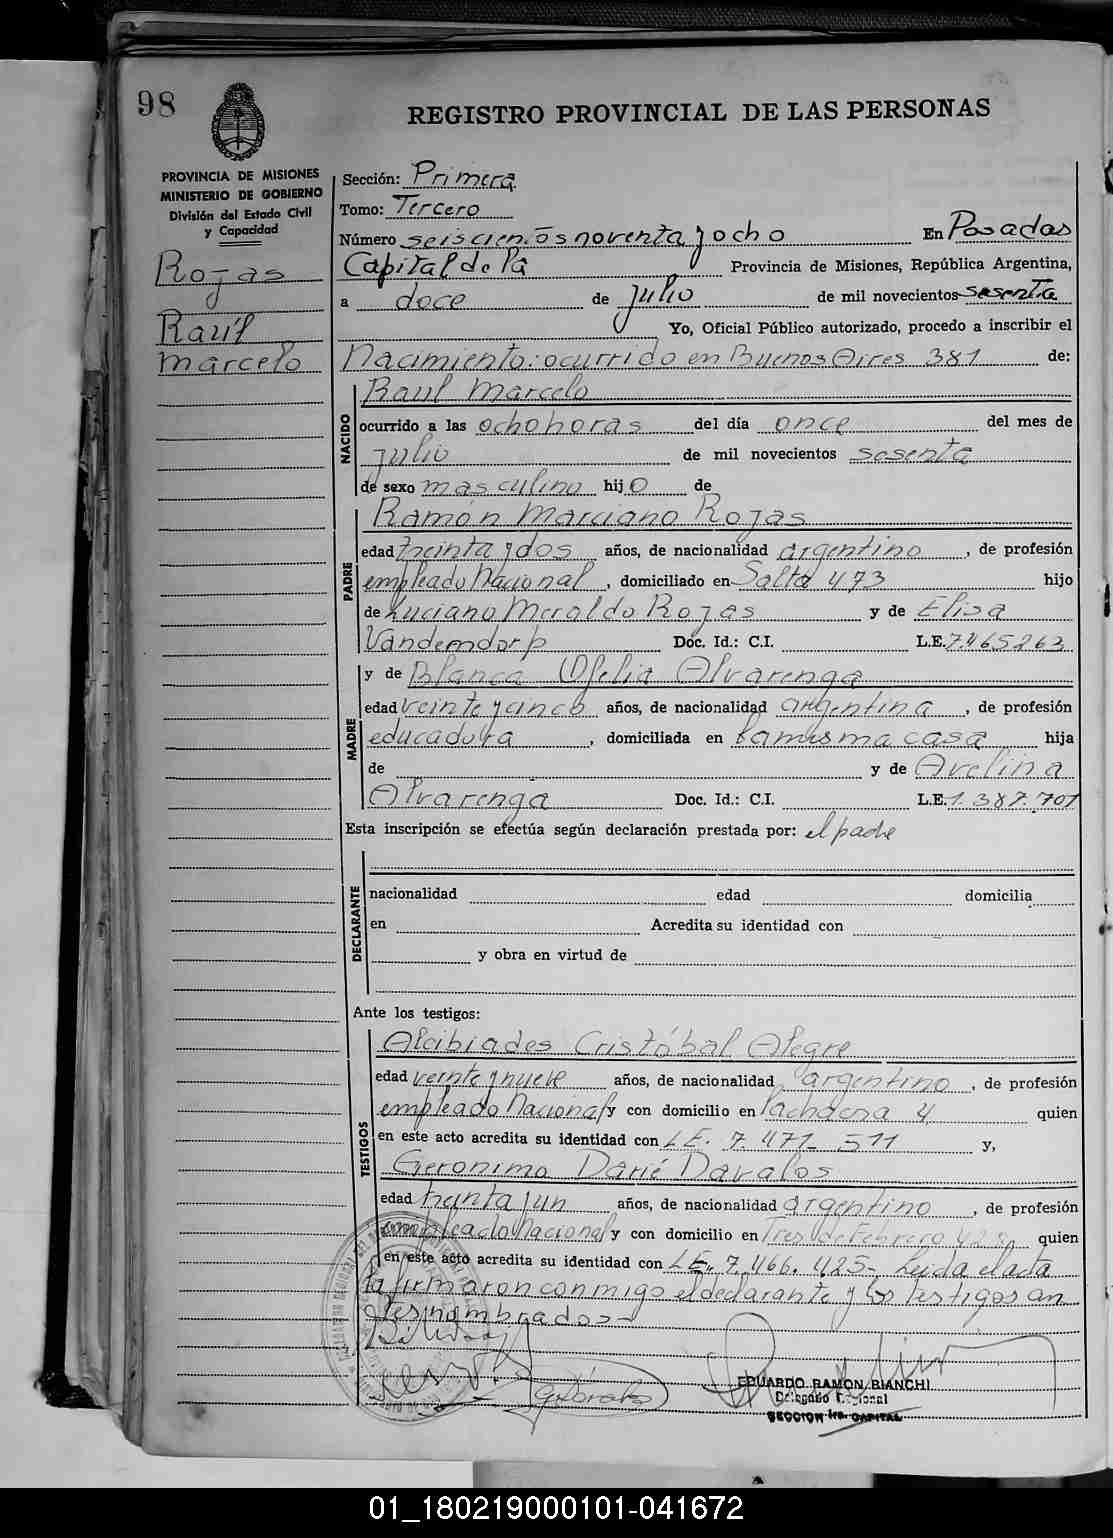 98
REGISTRO PROVINCIAL DE LAS PERSONAS
PROVINCIA DE MISIONES
MINISTERIO DE GOBIERNO
División del Estado Civil
y Capacidad
Rojas
Raúl
Marcelo
Sección: Primera
Tomo: Tercero
Número seiscientos noventa y ocho En Posadas
Capital de la Provincia de Misiones, República Argentina,
a doce de julio de mil novecientos sesenta
Yo, Oficial Público autorizado, procedo a inscribir el
Nacimiento: ocurrido en Buenos Aires 381 de:
NACIDO
Raul Marcelo
ocurrido a las ocho horas del día once del mes de
julio de mil novecientos sesenta
de sexo masculino hijo de
PADRE
Ramón Marciano Rojas
edad treinta y dos años, de nacionalidad argentino, de profesión
empleado Nacional, domiciliado en Salta 473 hijo
de Luciano Meraldo Rojas y de Elisa
Vandemdorp Doc. Id.: C.I. L.E. 7.465263
y de Blanca Ofelia Alvarenga
MADRE
edad veinte y cinco años, de nacionalidad argentina, de profesión
educadora, domiciliada en la misma casa hija
de y de Avelina
Alvarenga Doc. Id.: C.I. L.E. 1.387.701
Esta inscripción se efectúa según declaración prestada por: el padre
DECLARANTE
nacionalidad edad domicilia
en Acredita su identidad con
y obra en virtud de
Ante los testigos:
TESTIGOS
Alcibiades Cristóbal Alegre
edad veinte y nueve años, de nacionalidad argentino, de profesión
empleado Nacional y con domicilio en 4 quien
en este acto acredita su identidad con LE. 7.471-511 y,
Geronimo Darié Davalos
edad treinta y un años, de nacionalidad argentino, de profesión
empleado Nacional y con domicilio en Tres de Febrero quien
en este acto acredita su identidad con LE. 7.466.425- Leida el acta
la firmaron conmigo el declarante y los testigos an
tes nombrados-
EDUARDO RAMON BIANCHI
Delegado Regional
SECCION 1ra. CAPITAL
01_180219000101-041672